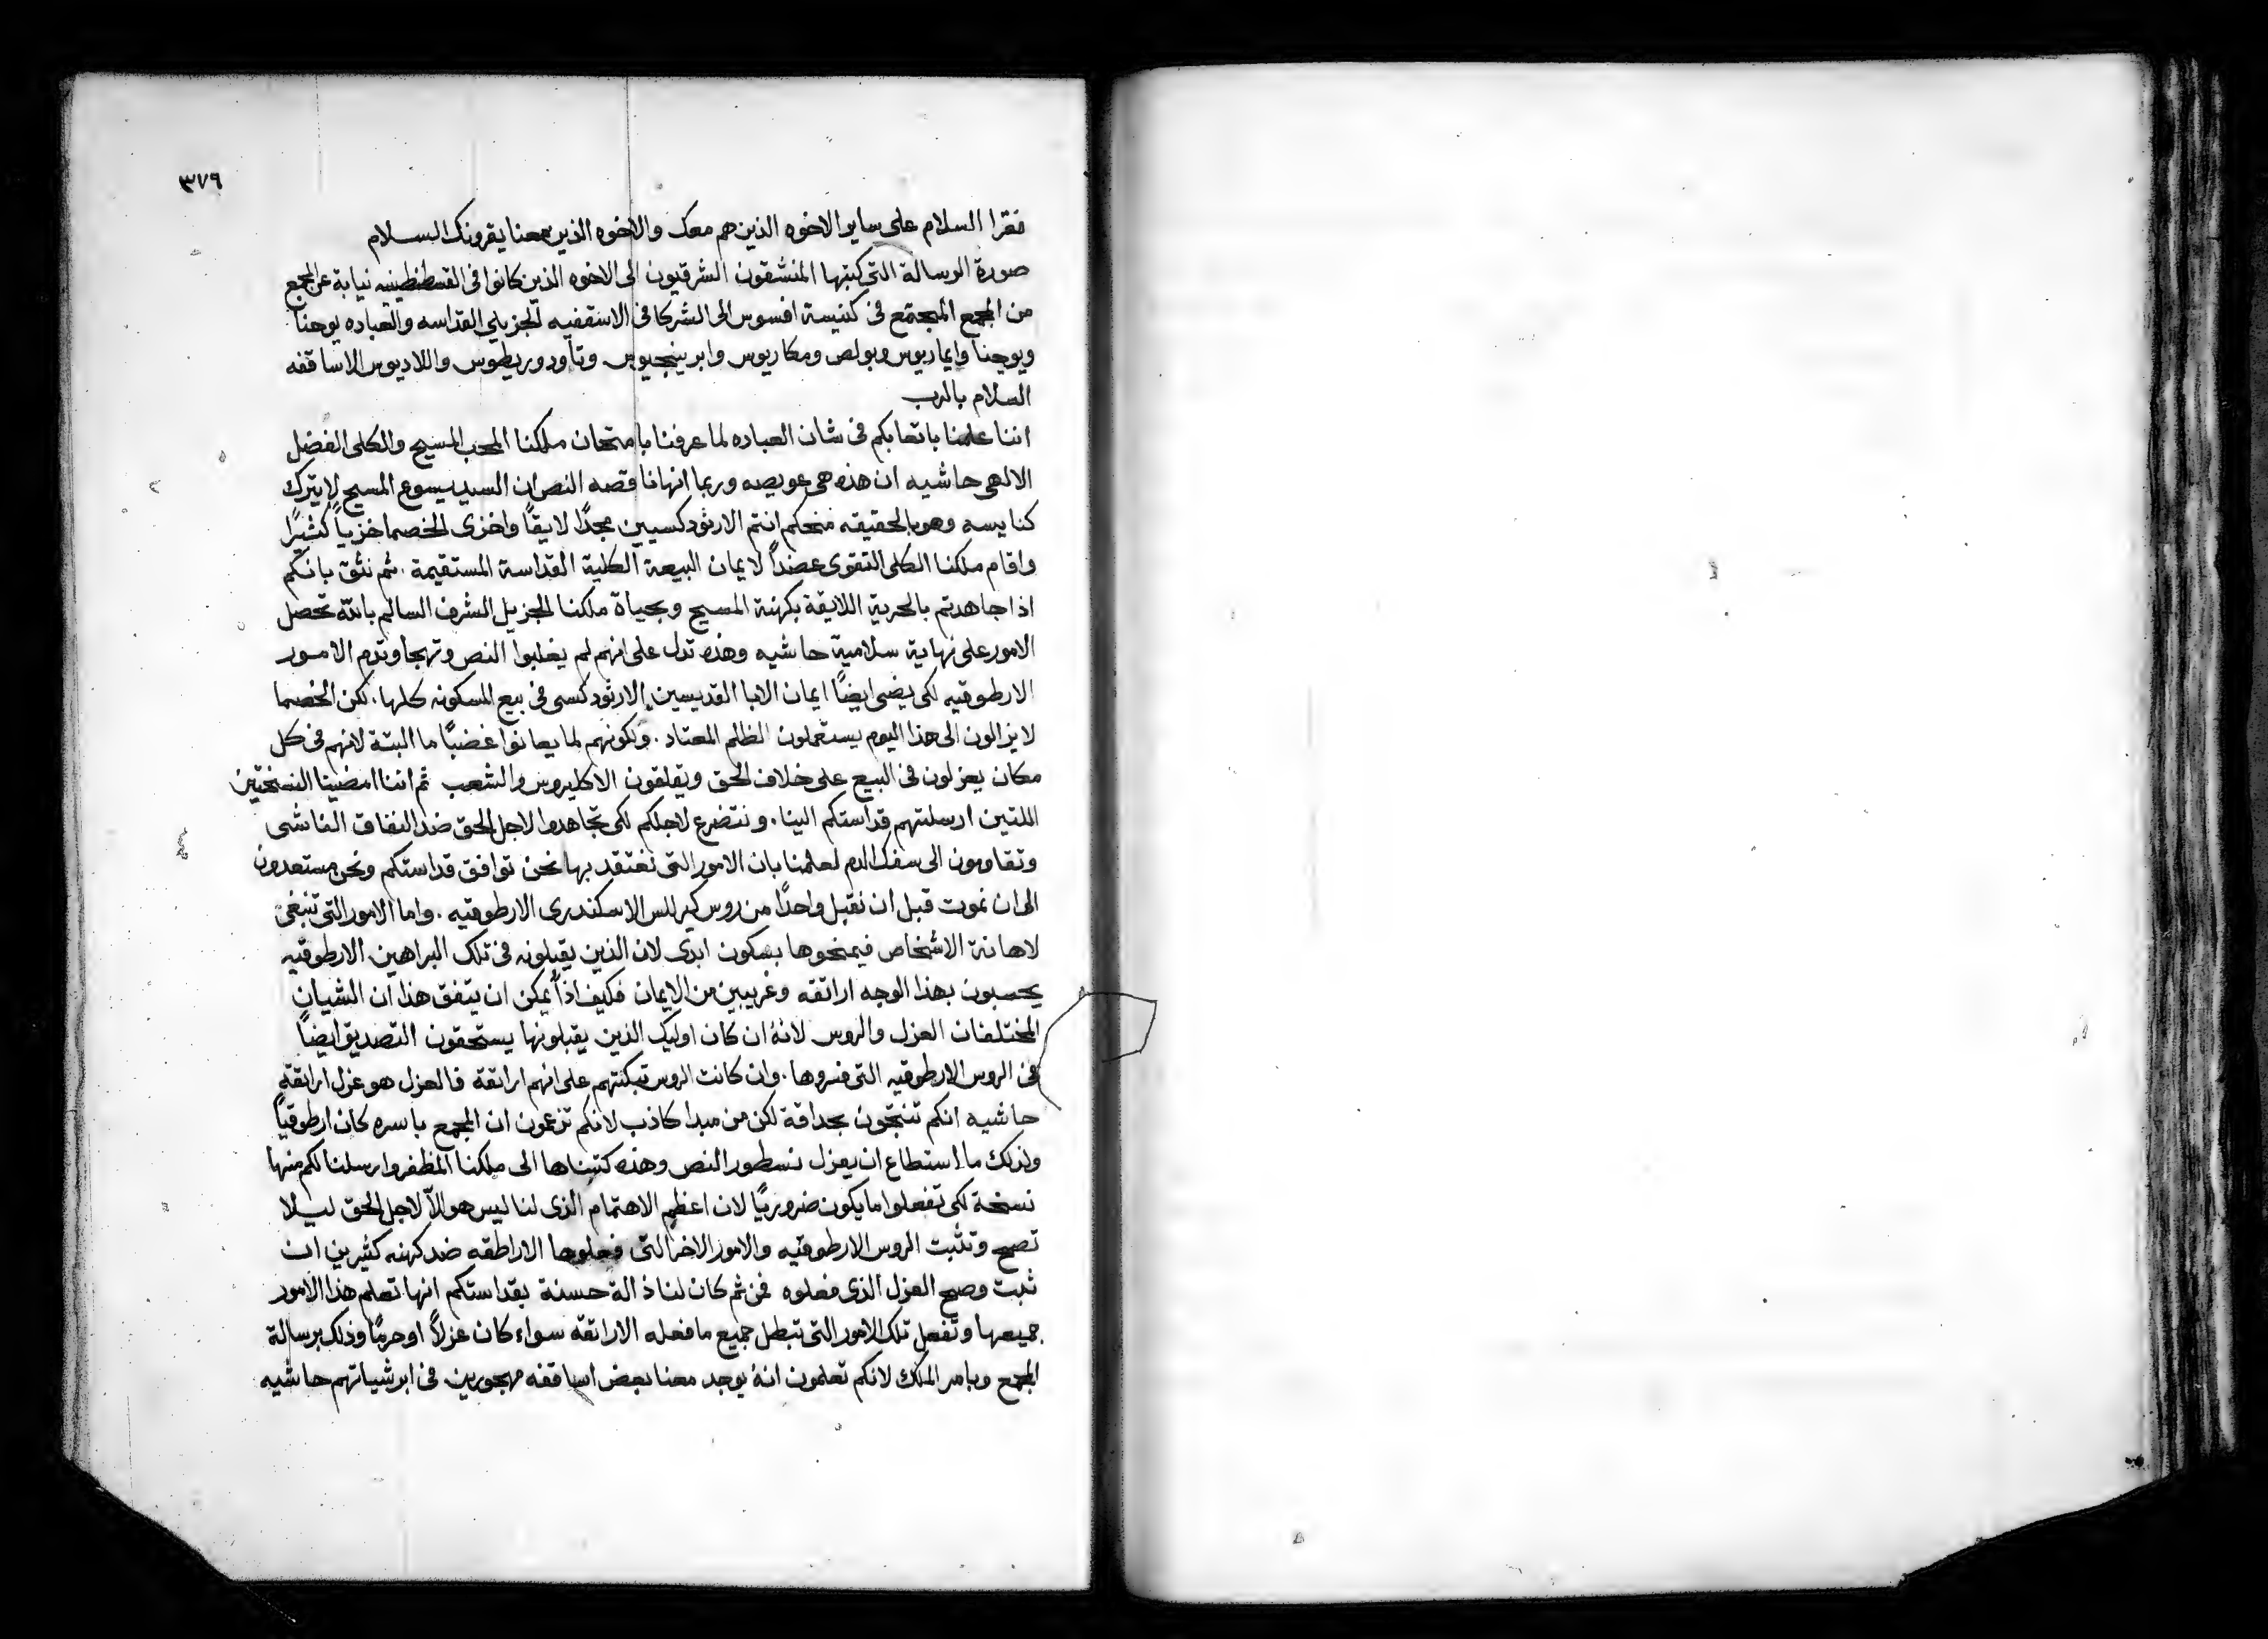 ٣٧٩
فقرا السلام على ساير الاخوه الذين هم معك والاخوه الذين معنا يقرونك السلام
صورة الرسالة التى كتبها المنشقون الشرقيون الى الاخوه الذين كانوا فى القسطنطينيه نيابة عن المجمع
من المجمع المجتمع فى كنيسة افسوس الى الشركا فى الاسقفيه الجزيلى القداسه والعباده يوحنا
ويوحنا وايماريوس وبولص ومكاريوس وابرينجيوس وتاودوريطوس واللاديوس الاساقفه
السلام بالرب
اننا علمنا باتعابكم فى شان العباده لما عرفنا بامتحان ملكنا المحب المسيح والكلى الفضل
الالهى حاشيه ان هذه هى عويصه وربما انها ناقصه النص ان السيد يسوع المسيح لا يترك
كنايسه وهو بالحقيقه منحكم انتم الارثودكسيين مجدًا لايقًا واخزى الخصما خزيًا كثيرًا
واقام ملكنا الكلى التقوى عضدًا لايمان البيعة الكلية القداسة المستقيمة. ثم نثق بانكم
اذا جاهدتم بالحرية اللايقة بكهنة المسيح وبحياة ملكنا الجزيل الشرف السالم بالله تحصل
الامور على نهاية سلامية حاشيه وهذه تدل على انهم لم يغلبوا النص وتهجا وتدم الامور
الارطوقيه لكى يضى ايضًا ايمان الابا القديسين الارثودكسى فى بيع المسكونه كلها. لكن الخصما
لا يزالون الى هذا اليوم يستعملون الظلم المعتاد. ولكونهم لما يعانوا غضبًا ما البتة لانهم فى كل
مكان يعزلون فى البيع على خلاف الحق ويقلقون الاكليروس والشعب ثم اننا امضينا النسختين
اللتين ارسلتهم قداستكم الينا. ونتضرع لاجلكم لكى تجاهدوا لاجل الحق ضد النفاق الفاشى
وتقاومون الى سفك الدم لعلمنا بان الامور التى نعتقد بها نحن توافق قداستكم ونحن مستعدون
الى ان نموت قبل ان نقبل واحدًا من روس كيرللس الاسكندرى الارطوقيه. واما الامور التى تنبغى
لاهانة الاشخاص فيمنحوها بسكون ابدى لان الذين يقبلونه فى تلك البراهين الارطوقيه
يحسبون بهذا الوجه اراتقه وغريبين من الايمان فكيف اذًا يمكن ان يتفق هذا ان الشيان
المختلفان العزل والروس لانهُ ان كان اوليك الذين يقبلونها يستحقون التصديق ايضًا
فى الروس الارطوقيه التى فسروها. وان كانت الروس تبكتهم على انهم اراتقة فالعزل هو عزل اراتقة
حاشيه انكم تنتجون بحداقة لكن من مبدا كاذب لانكم تزعمون ان المجمع باسره كان ارطوقيًا
ولذلك ما استطاع ان يعزل نسطور النص وهذه كتبناها الى ملكنا المظفر وارسلنا لكم منها
نسخة لكى تفعلوا ما يكون ضروريًا لان اعظم الاهتمام الذى لنا ليس هو الاّ لاجل الحق ليلا
تصح وتثبت الروس الارطوقيه والامور الاخر التى فعلوها الاراطقه ضد كهنه كثيرين ان
ثبت وصح العزل الذى فعلوه فمن ثم كان لنا ذالة حسنة بقداستكم انها تعلم هذا الامور
جميعها وتفعل تلك الامور التى تبطل جميع ما فعله الاراتقه سواء كان عزلاً او حرمًا وذلك برسالة
المجمع وبامر الملك لانكم تعلمون انهُ يوجد معنا بعض اساقفه مهجورين فى ابرشياتهم حاشيه